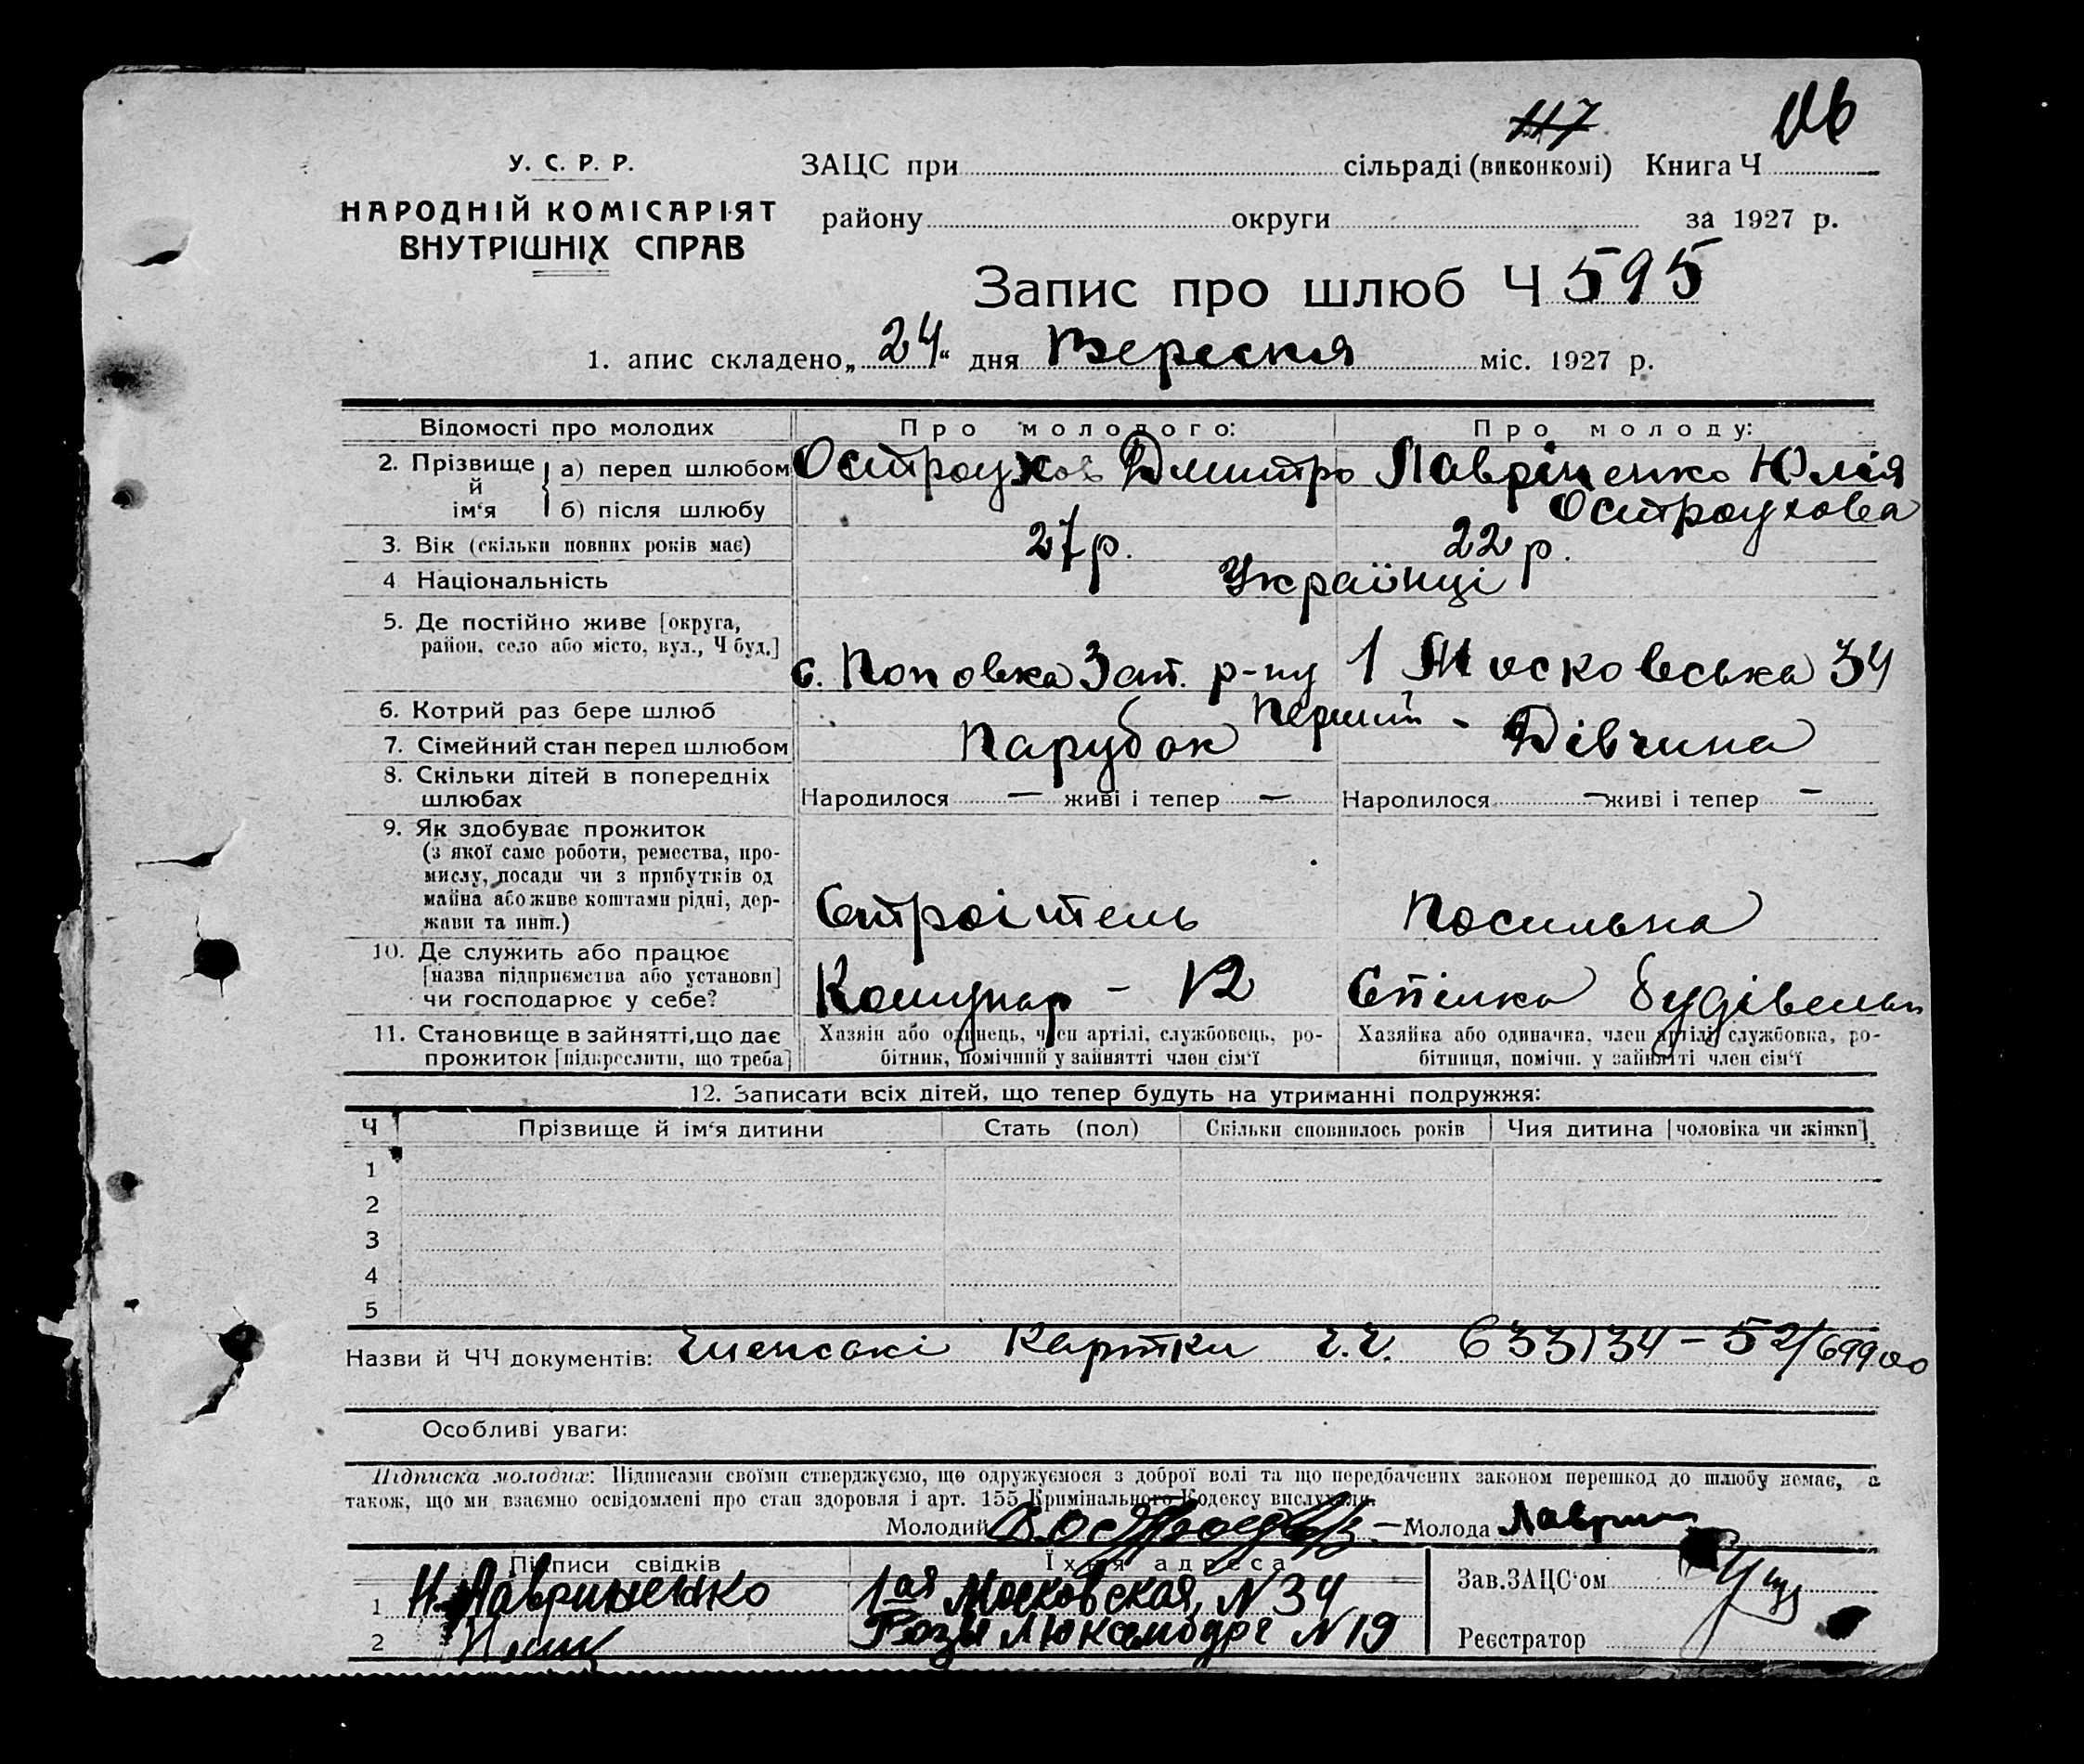 117 116
У. С. Р. Р.
НАРОДНІЙ КОМІСАРІЯТ
ВНУТРІШНІХ СПРАВ
ЗАЦС при сільраді (виконкомі) Книга Ч
району округи за 1927 р.
Запис про шлюб Ч 595
1. апис складено „24“ дня Вересня міс. 1927 р.
Відомості про молодих Про молодого: Про молоду:
2. Прізвище й ім‘я а) перед шлюбом Остроухов Дмитро Лавріненко Юлія
б) після шлюбу Остроухова
3. Вік (скільки повних років має) 27 р. 22 р.
4 Національність Українці
5. Де постійно живе [округа,
район, село або місто, вул., Ч буд.] с. Поповка Зат. р-ну 1 Московська 34
6. Котрий раз бере шлюб Перший -
7. Сімейний стан перед шлюбом Парубок Дівчина
8. Скільки дітей в попередніх
шлюбах Народилося — живі і тепер — Народилося — живі і тепер —
9. Як здобуває прожиток
(з якої саме роботи, ремества, про-
мислу, посади чи з прибутків од
майна або живе коштами рідні, дер-
жави та инш.) Строітель Посильна
10. Де служить або працює
[назва підприємства або установи]
чи господарює у себе? Комунар - Спілка будівельн
11. Становище в зайнятті, що дає
прожиток [підкреслити, що треба]
Хазяїн або одинець, член артілі, службовець, ро-
бітник, помічний у зайнятті член сім‘ї
Хазяйка або одиначка, член артілі, службовка, ро-
бітниця, помічн. у зайнятті член сім‘ї
12. Записати всіх дітей, що тепер будуть на утриманні подружжя:
Ч Прізвище й ім‘я дитини Стать (пол) Скільки сповнилось років Чия дитина [чоловіка чи жінки]
1
2
3
4
5
Назви й ЧЧ документів: Членські Картки ч.ч. 633134 - 52/69900
Особливі уваги:
Підписка молодих: Підписами своїми стверджуємо, що одружуємося з доброї волі та що передбачених законом перешкод до шлюбу немає, а
також, що ми взаємно освідомлені про стан здоровля і арт. 155 Кримінального Кодексу вислухали.
Молодий Молода Лаврин
Підписи свідків Їхня адреса
1 Н. Лавриненко 1ая Московская, N 34
2 Розы Люксембург N 19
Зав. ЗАЦС‘ом
Реєстратор